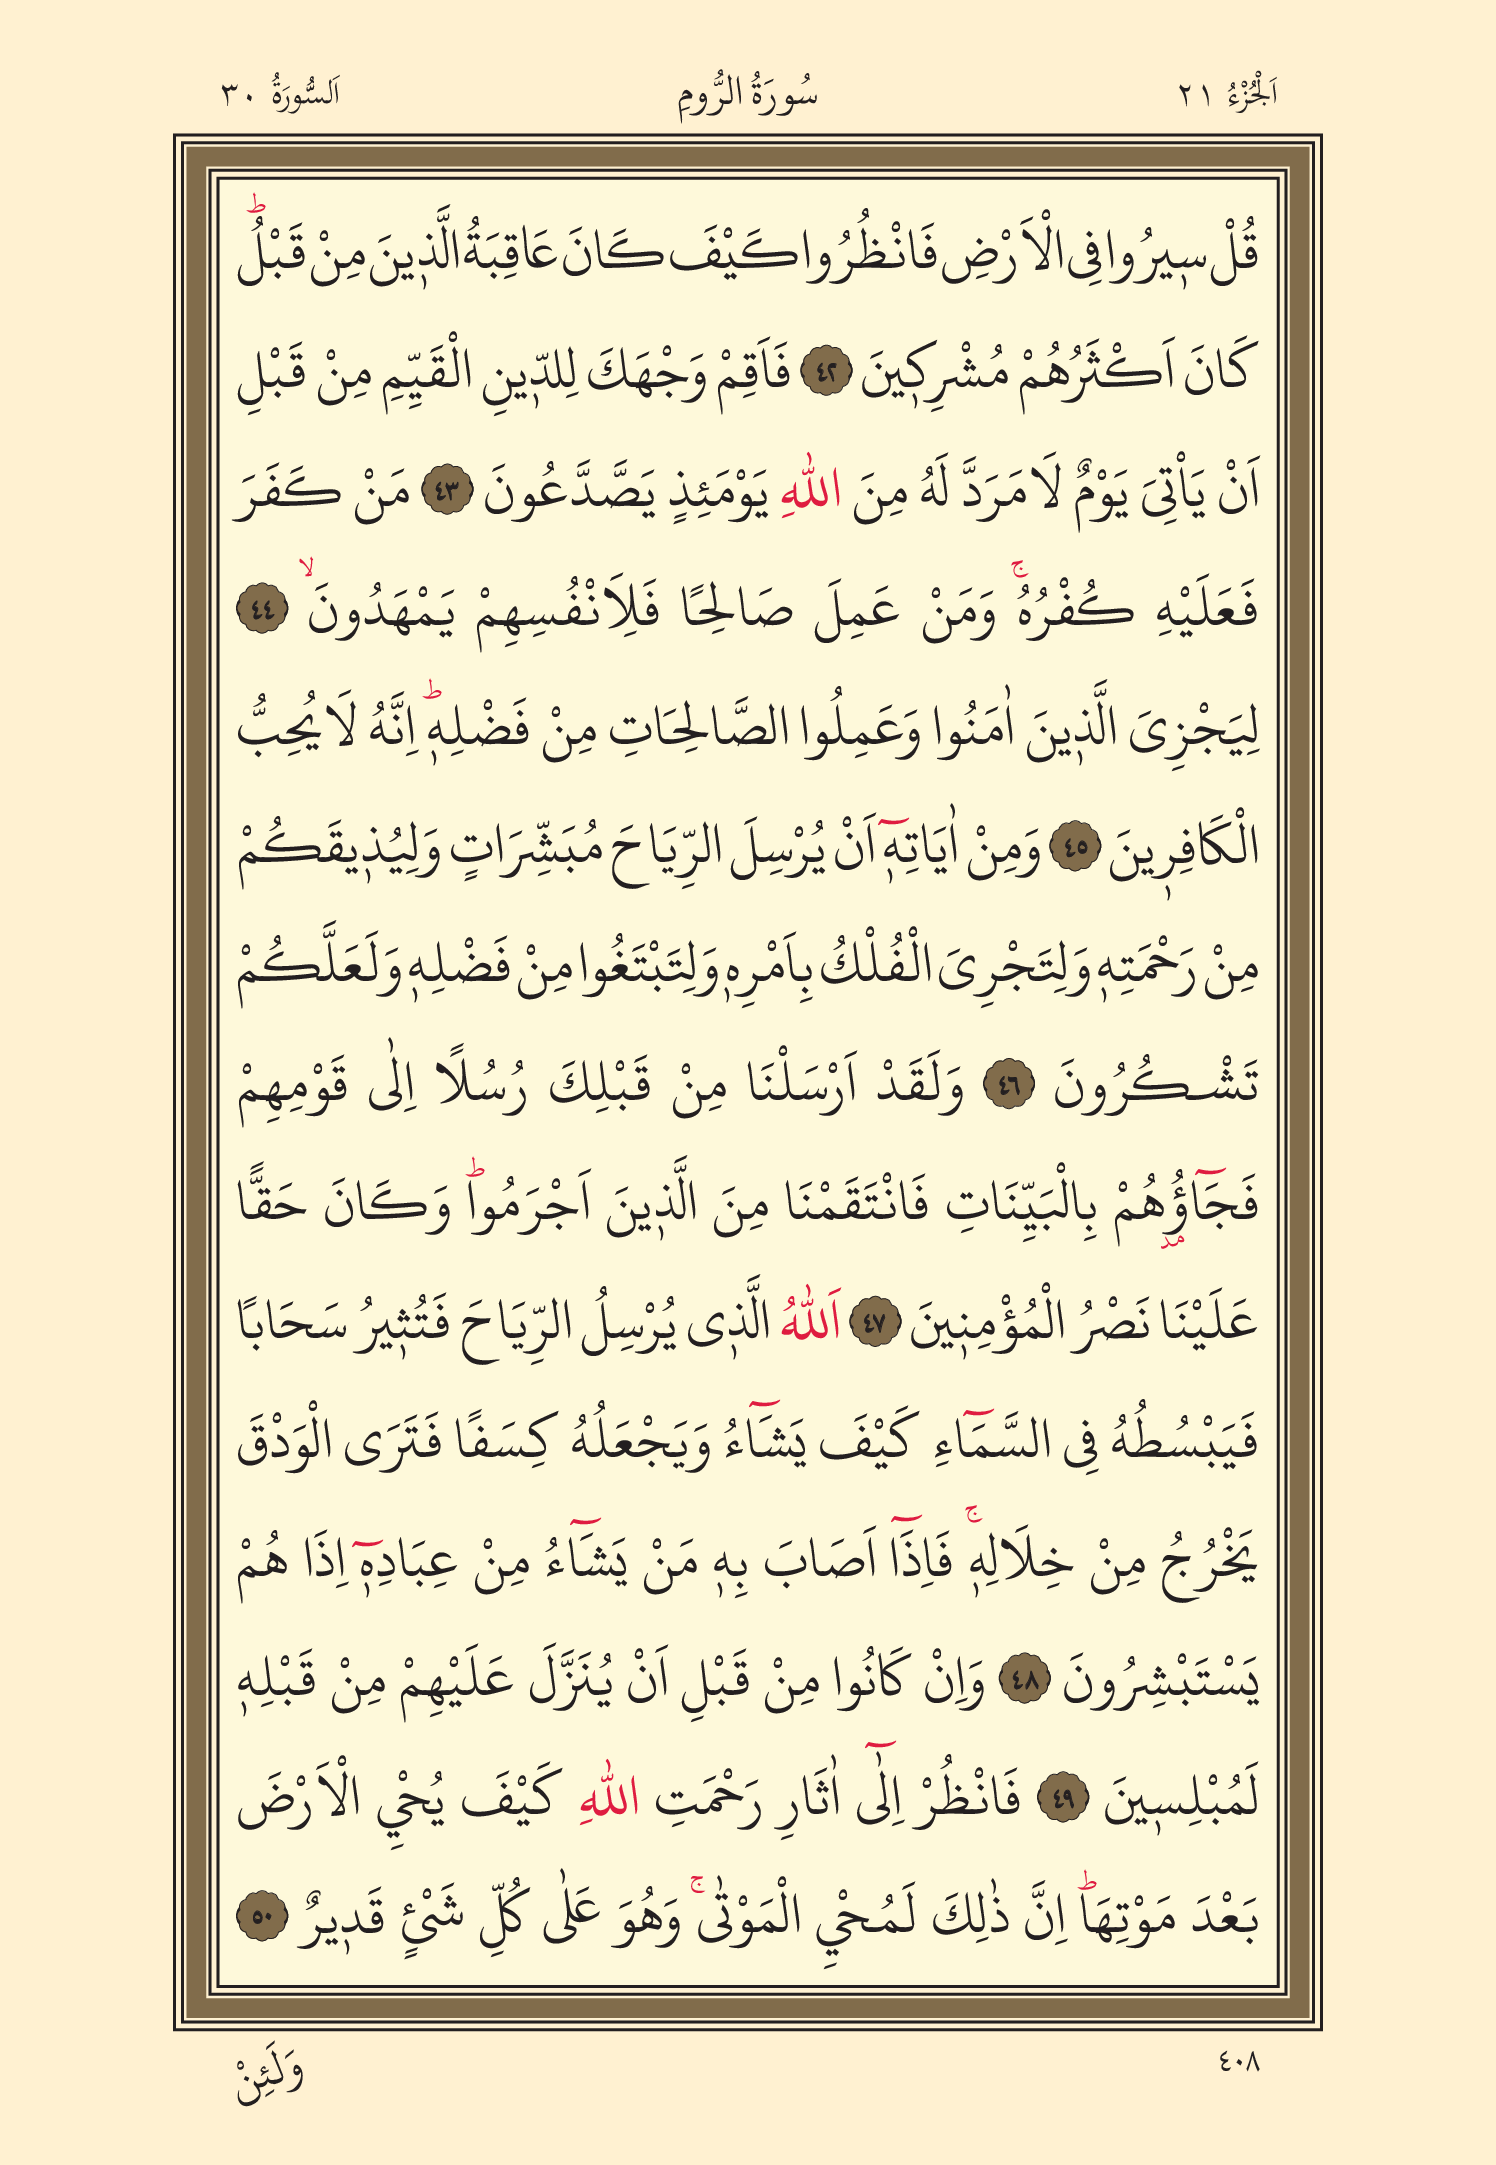 اَلْجُزْءُ ٢١ سُورَةُ الرُّومِ اَلسُّورَةُ ٣٠
قُلْ سٖيرُوا فِى الْاَرْضِ فَانْظُرُوا كَيْفَ كَانَ عَاقِبَةُ الَّذٖينَ مِنْ قَبْلُؕ
كَانَ اَكْثَرُهُمْ مُشْرِكٖينَ ﴿٤٢﴾ فَاَقِمْ وَجْهَكَ لِلدّٖينِ الْقَيِّمِ مِنْ قَبْلِ
اَنْ يَاْتِىَ يَوْمٌ لَا مَرَدَّ لَهُ مِنَ اللّٰهِ يَوْمَئِذٍ يَصَّدَّعُونَ ﴿٤٣﴾ مَنْ كَفَرَ
فَعَلَيْهِ كُفْرُهُۚ وَمَنْ عَمِلَ صَالِحًا فَلِاَنْفُسِهِمْ يَمْهَدُونَۙ ﴿٤٤﴾
لِيَجْزِىَ الَّذٖينَ اٰمَنُوا وَعَمِلُوا الصَّالِحَاتِ مِنْ فَضْلِهٖؕ اِنَّهُ لَا يُحِبُّ
الْكَافِرٖينَ ﴿٤٥﴾ وَمِنْ اٰيَاتِهٖٓ اَنْ يُرْسِلَ الرِّيَاحَ مُبَشِّرَاتٍ وَلِيُذٖيقَكُمْ
مِنْ رَحْمَتِهٖ وَلِتَجْرِىَ الْفُلْكُ بِاَمْرِهٖ وَلِتَبْتَغُوا مِنْ فَضْلِهٖ وَلَعَلَّكُمْ
تَشْكُرُونَ ﴿٤٦﴾ وَلَقَدْ اَرْسَلْنَا مِنْ قَبْلِكَ رُسُلًا اِلٰى قَوْمِهِمْ
فَجَٓاؤُ۫هُمْ بِالْبَيِّنَاتِ فَانْتَقَمْنَا مِنَ الَّذٖينَ اَجْرَمُواؕ وَكَانَ حَقًّا
عَلَيْنَا نَصْرُ الْمُؤْمِنٖينَ ﴿٤٧﴾ اَللّٰهُ الَّذٖى يُرْسِلُ الرِّيَاحَ فَتُثٖيرُ سَحَابًا
فَيَبْسُطُهُ فِى السَّمَٓاءِ كَيْفَ يَشَٓاءُ وَيَجْعَلُهُ كِسَفًا فَتَرَى الْوَدْقَ
يَخْرُجُ مِنْ خِلَالِهٖۚ فَاِذَٓا اَصَابَ بِهٖ مَنْ يَشَٓاءُ مِنْ عِبَادِهٖٓ اِذَا هُمْ
يَسْتَبْشِرُونَ ﴿٤٨﴾ وَاِنْ كَانُوا مِنْ قَبْلِ اَنْ يُنَزَّلَ عَلَيْهِمْ مِنْ قَبْلِهٖ
لَمُبْلِسٖينَ ﴿٤٩﴾ فَانْظُرْ اِلٰٓى اٰثَارِ رَحْمَتِ اللّٰهِ كَيْفَ يُحْيِ الْاَرْضَ
بَعْدَ مَوْتِهَاؕ اِنَّ ذٰلِكَ لَمُحْيِ الْمَوْتٰىۚ وَهُوَ عَلٰى كُلِّ شَیْئٍ قَدٖيرٌ ﴿٥٠﴾
٤٠٨ وَلَئِنْ